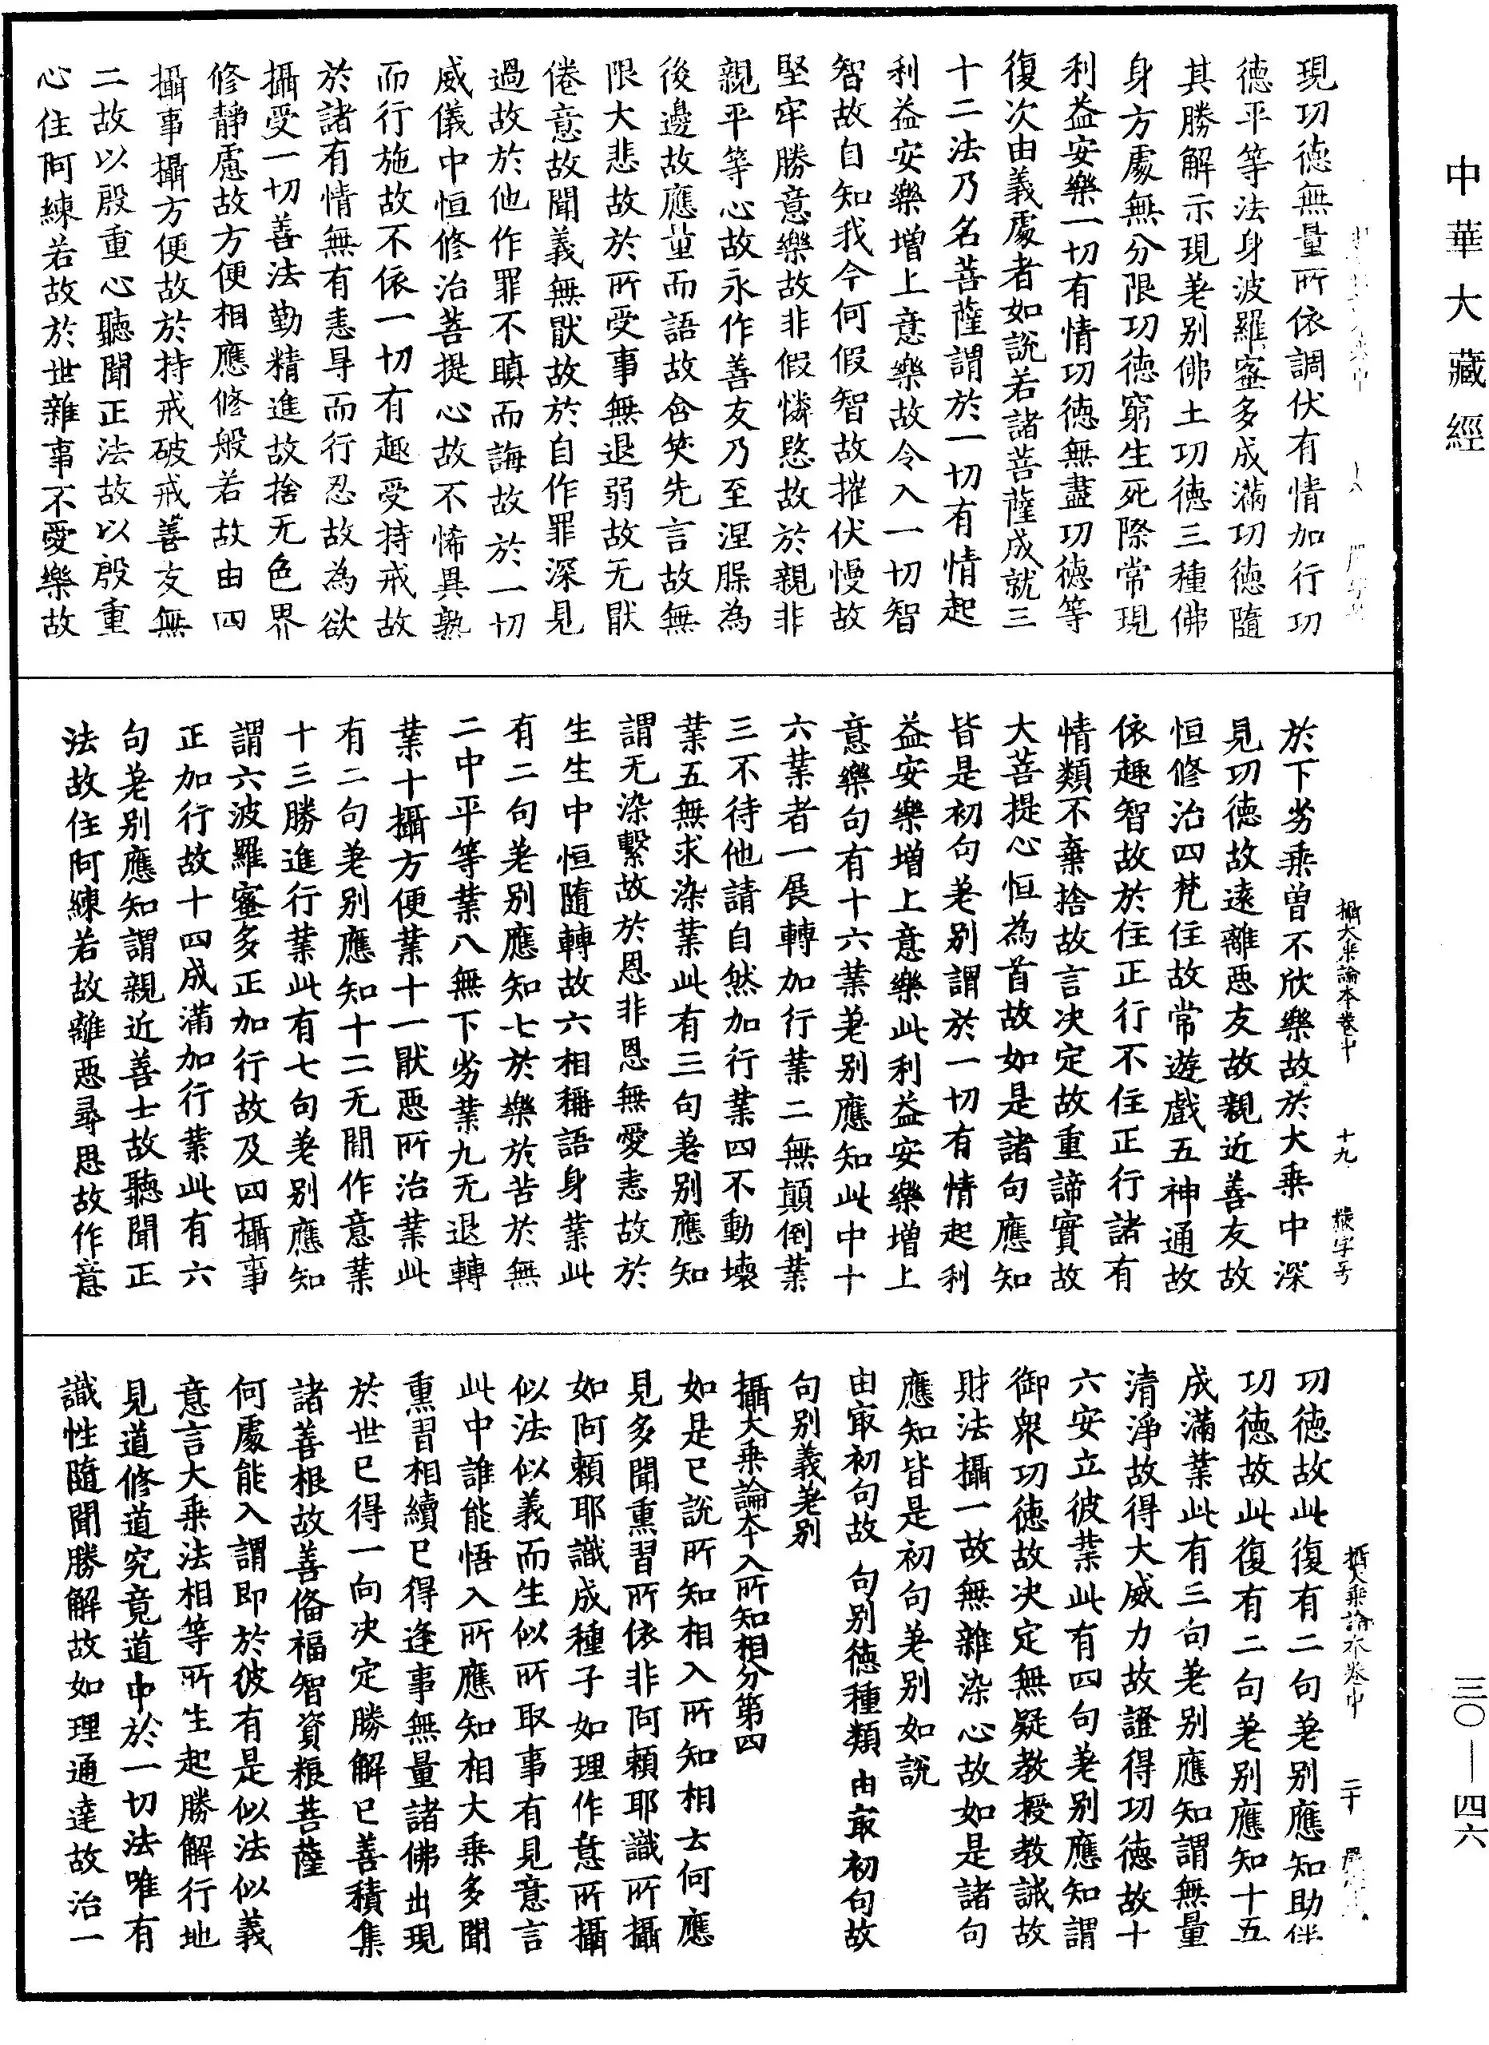 中華大藏經
現功德無量所依調伏有情加行功
德平等法身波羅蜜多成滿功德隨
其勝解示現差別佛土功德三種佛
身方處無分限功德窮生死際常現
利益安樂一切有情功德無盡功德等
復次由義處者如說若諸菩薩成就三
十二法乃名菩薩謂於一切有情起
利益安樂增上意樂故令入一切智
智故自知我今何假智故摧伏慢故
堅牢勝意樂故非假憐愍故於親非
親平等心故永作善友乃至涅槃為
後邊故應量而語故含笑先言故無
限大悲故於所受事無退弱故无猒
倦意故聞義無猒故於自作罪深見
過故於他作罪不瞋而誨故於一切
威儀中恒修治菩提心故不悕異熟
而行施故不依一切有趣受持戒故
於諸有情無有恚导而行忍故為欲
攝受一切善法勤精進故捨无色界
修靜慮故方便相應修般若故由四
攝事攝方便故於持戒破戒善友無
二故以殷重心聽聞正法故以殷重
心住阿練若故於世雜事不愛樂故
攝大乘論本卷中 十九 樣字号
於下劣乘曾不欣樂故於大乘中深
見功德故遠離惡友故親近善友故
恒修治四梵住故常遊戲五神通故
依趣智故於住正行不住正行諸有
情類不棄捨故言決定故重諦實故
大菩提心恒為首故如是諸句應知
皆是初句差別謂於一切有情起利
益安樂增上意樂此利益安樂增上
意樂句有十六業差別應知此中十
六業者一展轉加行業二無顛倒業
三不待他請自然加行業四不動壞
業五無求染業此有三句差別應知
謂无染繫故於恩非恩無愛恚故於
生生中恒隨轉故六相稱語身業此
有二句差別應知七於樂於苦於無
二中平等業八無下劣業九无退轉
業十攝方便業十一猒惡所治業此
有二句差別應知十二无間作意業
十三勝進行業此有七句差別應知
謂六波羅蜜多正加行故及四攝事
正加行故十四成滿加行業此有六
句差別應知謂親近善士故聽聞正
法故住阿練若故離惡尋思故作意
攝大乘論本卷中 二十
功德故此復有二句差別應知助伴
功德故此復有二句差別應知十五
成滿業此有三句差別應知謂無量
清淨故得大威力故證得功德故十
六安立彼業此有四句差別應知謂
御眾功德故決定無疑教授教誡故
財法攝一故無雜染心故如是諸句
應知皆是初句差別如說
由㝡初句故 句別德種類 由㝡初句故
句別義差別
攝大乘論本入所知相分第四
如是已說所知相入所知相云何應
見多聞熏習所依非阿賴耶識所攝
如阿賴耶識成種子如理作意所攝
似法似義而生似所取事有見意言
此中誰能悟入所應知相大乘多聞
熏習相續已得逢事無量諸佛出現
於世已得一向決定勝解已善積集
諸善根故善俻福智資粮菩薩
何處能入謂即於彼有是似法似義
意言大乘法相等所生起勝解行地
見道修道究竟道中於一切法唯有
識性隨聞勝解故如理通達故治一
三〇—四六